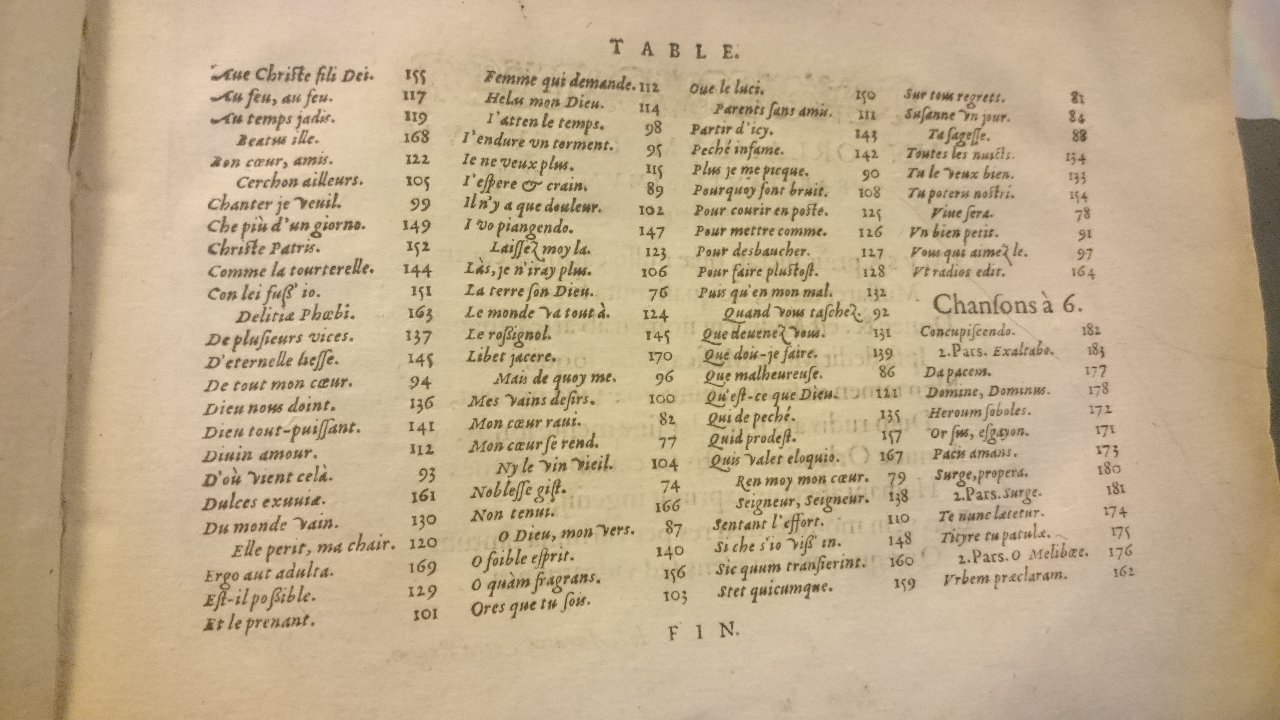 TABLE.
Aue Christe fili Dei. 155
Au feu, au feu. 117
Au temps jadis. 119
Beatus ille. 168
Bon cœur, amis. 122
Cerchon ailleurs. 105
Chanter je veuil. 99
Che più d'un giorno. 149
Christe Patris. 152
Comme la tourterelle. 144
Con lei fuſſ' io. 151
Delitiæ Phœbi. 163
De pluſieurs vices. 137
D'eternelle lieſſe. 145
De tout mon cœur. 94
Dieu nous doint. 136
Dieu tout-puiſſant. 141
Diuin amour. 112
D'où vient celà. 93
Dulces exuuiæ. 161
Du monde vain. 130
Elle perit, ma chair. 120
Ergo aut adulta. 169
Eſt-il poßible. 129
Et le prenant. 101
Femme qui demande. 112
Helas mon Dieu. 114
I'atten le temps. 98
I'endure vn torment. 95
Ie ne veux plus. 115
I'eſpere & crain. 89
Il n'y a que douleur. 102
I vo piangendo. 147
Laiſſez moy la. 123
Làs, je n'iray plus. 106
La terre ſon Dieu. 76
Le monde va tout à. 124
Le roßignol. 145
Libet jacere. 170
Mais de quoy me. 96
Mes vains deſirs. 100
Mon cœur raui. 82
Mon cœur ſe rend. 77
Ny le vin vieil. 104
Nobleſſe giſt. 74
Non tenui. 166
O Dieu, mon vers. 87
O foible eſprit. 140
O quàm fragrans. 156
Ores que tu ſois. 103
Oue le luci. 150
Parents ſans amis. 111
Partir d'icy. 143
Peché infame. 142
Plus je me picque. 90
Pourquoy font bruit. 108
Pour courir en poſte. 125
Pour mettre comme. 126
Pour desbaucher. 127
Pour faire pluſtoſt. 128
Puis qu'en mon mal. 132
Quand vous taſchez. 92
Que deuenez vous. 131
Que doi-je faire. 139
Que malheureuſe. 86
Qu'eſt-ce que Dieu. 121
Qui de peché. 135
Quid prodeſt. 157
Quis valet eloquio. 167
Ren moy mon cœur. 79
Seigneur, Seigneur. 138
Sentant l'effort. 110
Si che s'io viß' in. 148
Sic quum tranſierint. 160
Stet quicumque. 159
Sur tous regrets. 81
Suſanne vn jour. 84
Ta ſageſſe. 88
Toutes les nuicts. 134
Tu le veux bien. 133
Tu poteru noſtri. 154
Viue ſera. 78
Vn bien petit. 91
Vous qui aimez le. 97
Vt radios edit. 164
Chanſons à 6.
Concupiſcendo. 182
2.Pars. Exaltabo. 183
Da pacem. 177
Domine, Dominus. 178
Heroum ſoboles. 172
Or ſus, eſgayon. 171
Pacis amans. 173
Surge, propera. 180
2.Pars. Surge. 181
Te nunc lætetur. 174
Tityre tu patulæ. 175
2.Pars. O Melibœe. 176
Vrbem præclaram. 162
FIN.